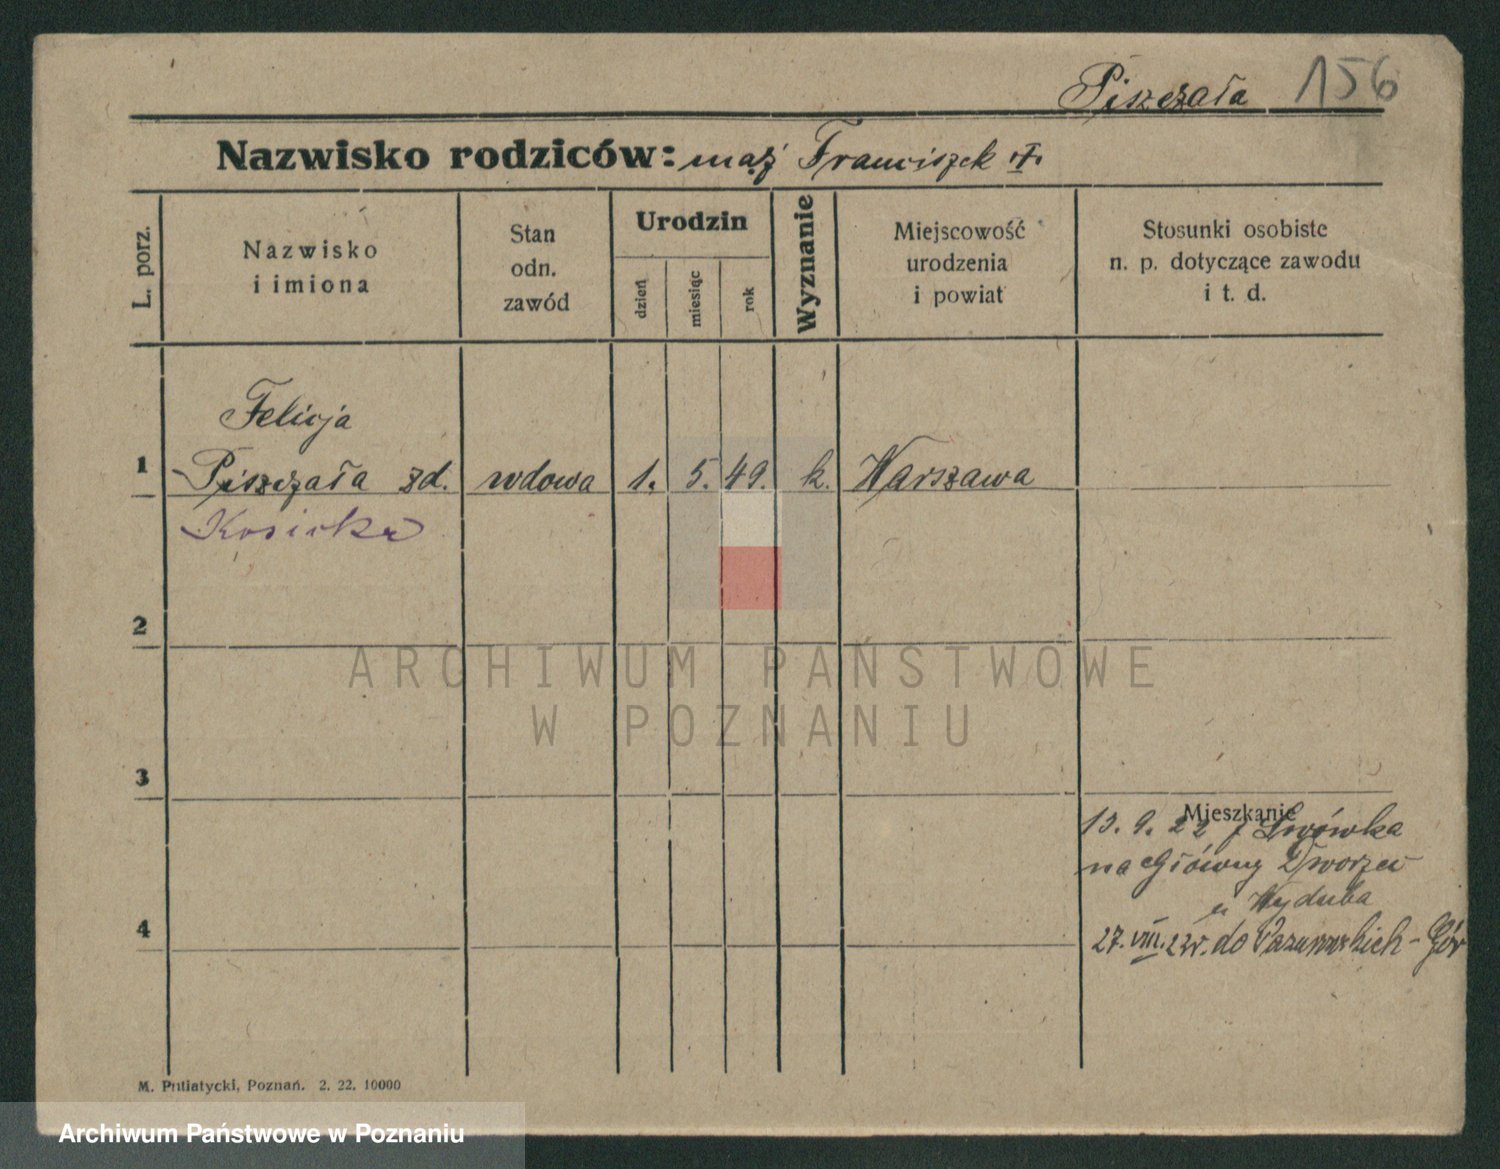 Piszczała 156
Nazwisko rodziców: mąż Franciszek
L. porz.
Nazwisko
i imiona
Stan
odn.
zawód
Urodzin
dzień
miesiąc
rok
Wyznanie
Miejscowość
urodzenia
i powiat
Stosunki osobiste
n. p. dotyczące zawodu
i t. d.
Felicja
1 Piszczała zd. wdowa 1. 5. 49. k. Warszawa
2
3
Mieszkanie
13. 9. 22 z Lwówka
na Główny Dworzec
u Wyduba
4
27. VIII. 23r. do
M. Putiatycki, Poznań. 2. 22. 10000
ARCHIWUM PAŃSTWOWE
W POZNANIU
Archiwum Państwowe w Poznaniu